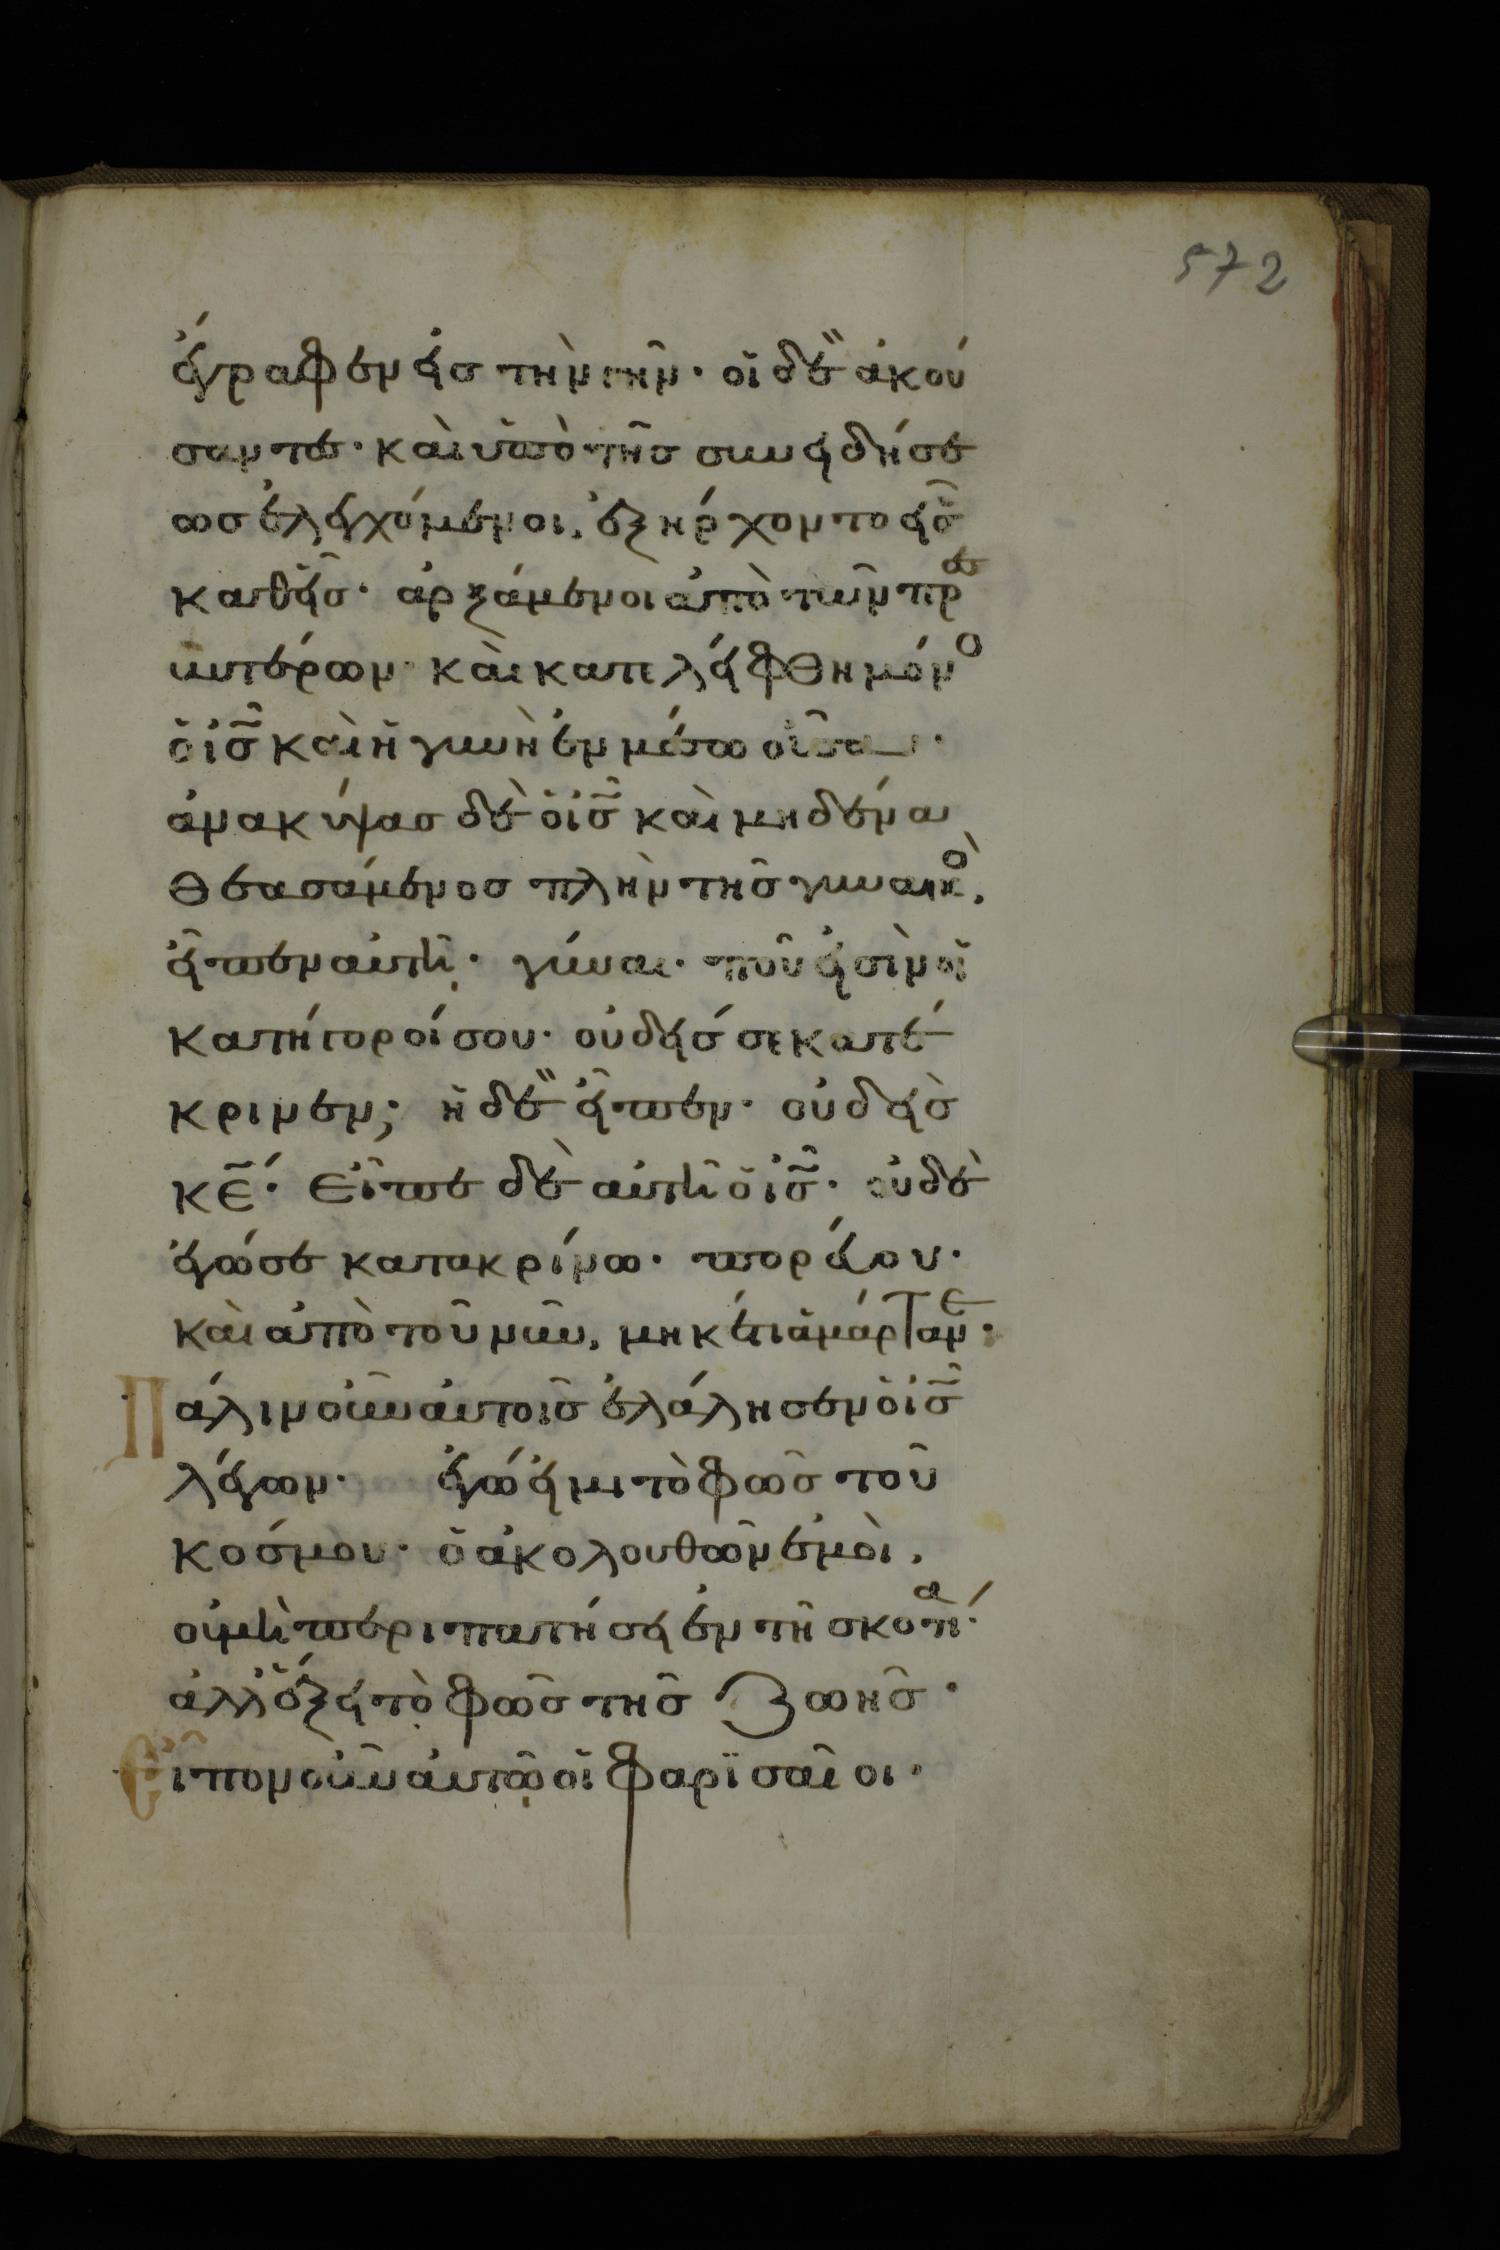 572
ἔγραφεν εἰσ τὴν γῆν· οἱ δὲ ἀκού
σαντες· καὶ ὑπὸ τῆσ συνειδήσε
ωσ ἐλεγχόμενοι, ἐξήρχοντο εἷσ
καθεῖσ· ἀρξάμενοι ἀπὸ τῶν πρεσ
βυτέρων· καὶ κατελείφθη μόνο
ὁ ισ̅ καὶ ἡ γυνὴ ἐν μέσω οὖσα·
ἀνακύψασ δὲ ὁ ισ̅ καὶ μηδένα
θεασάμενοσ πλὴν τῆσ γυναικὸ,
εἶπεν αὐτῆ· γύναι· ποῦ εἰσὶν οἱ
κατήγοροί σου· οὐδείσ σε κατέ
κρινεν; ἡ δὲ εἶπεν· οὐδεὶσ
κε̅· Εἶπε δὲ αὐτῆ ὁ ισ̅· οὐδὲ
ἐγώ σε κατακρίνω· πορεύου·
καὶ ἀπὸ τοῦ νῦν, μηκέτι ἁμάρτανε·
Πάλιν οὖν αὐτοῖσ ἐλάλησεν ὁ ισ̅
λέγων· ἐγώ εἰμι τὸ φῶσ τοῦ
κόσμου· ὁ ἀκολουθῶν ἐμοὶ,
οὐ μὴ περιπατήσει ἐν τῆ σκοτία·
ἀλλ' ἕξει τὸ φῶσ τῆσ ζωῆσ·
Εἶπον οὖν αὐτῶ οἱ φαρϊσαῖοι·